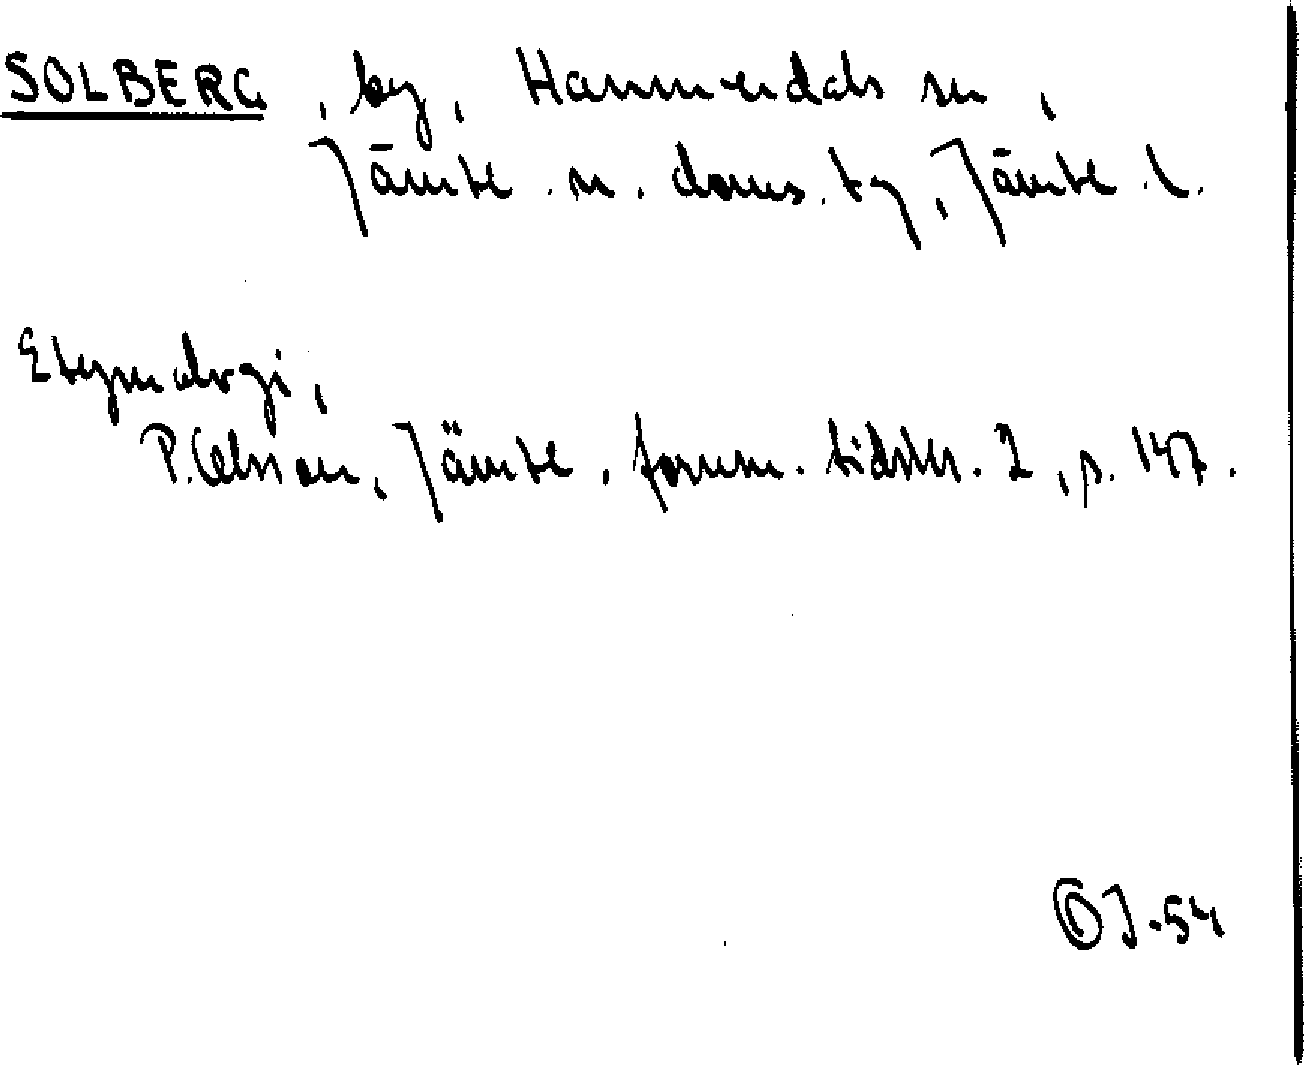 SOLBERG, by, Hammerdals sn,
Jämtl. n. doms. tg, Jämtl. l.
Etymologi,
P. Olsson, Jämtl. fornm. tidskr. 2, s. 147.
J-54